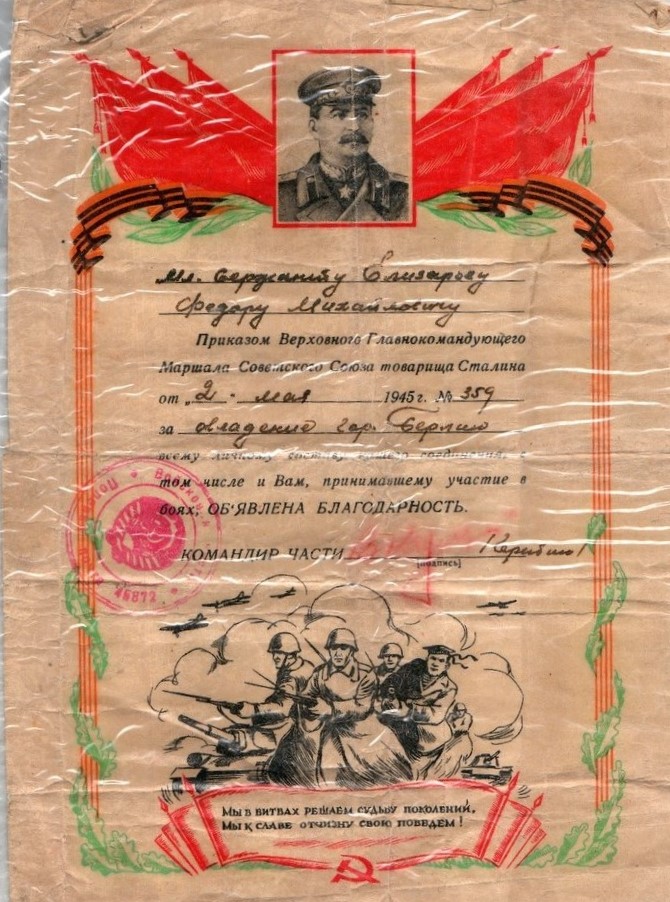 Мл. Сержанту Елизарьеву
Федору Михайловичу
Приказом Верховного Главнокомандующего
Маршала Советского Союза товарища Сталина
от „2 - мая 1945 г. № 359
за овладение гор. Берлин
всему личному составу нашего соединения, в
том числе и Вам, принимавшему участие в
боях, ОБ'ЯВЛЕНА БЛАГОДАРНОСТЬ.
КОМАНДИР ЧАСТИ
[подпись]
46872
Мы в битвах решаем судьбу поколений,
Мы к славе отчизну свою поведем!